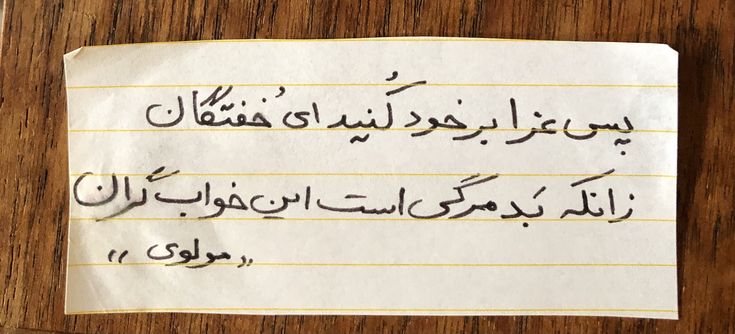 پس عزا بر خود کُنید ای خُفتگان
زانکه بَد مرگی است این خواب گران
"مولوی"